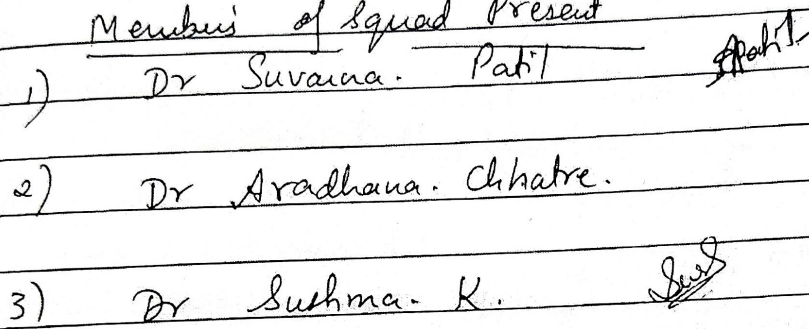 Members of Squad Present
1) Dr Suvarna. Patil
2) Dr Aradhana. Chhatre.
3) Dr Sushma. K.